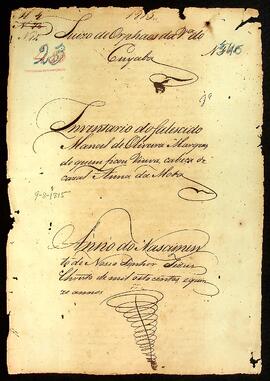 1815
N 4
Nº 15
Juizo de Orphaos da Vª do
Cuyabá
25
Nº 346
Inventario do falescido
Manoel de Oliveira Marques
de quem ficou Viuva, cabeça de
casal Anna da Mota
9-8-1815
Anno do Nascimen
to de Nosso Senhor Jesus
Christo de mil oito centos e quin
ze annos